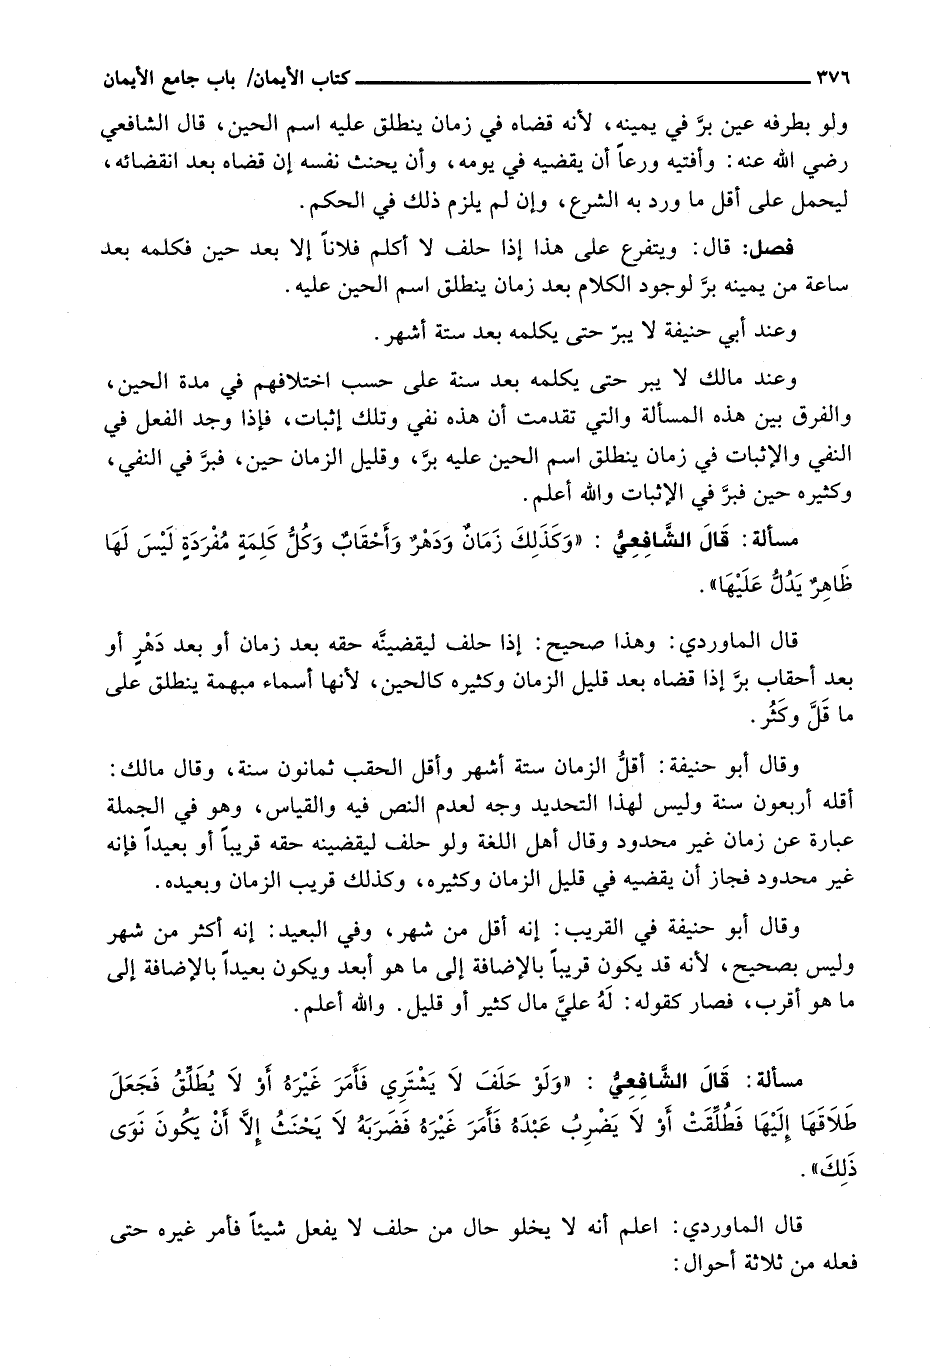 ٣٧٦ كتاب الأيمان/ باب جامع الأيمان
ولو بطرفه عين برَّ في يمينه، لأنه قضاه في زمان ينطلق عليه اسم الحين، قال الشافعي
رضي الله عنه: وأفتيه ورعاً أن يقضيه في يومه، وأن يحنث نفسه إن قضاه بعد انقضائه،
ليحمل على أقل ما ورد به الشرع، وإن لم يلزم ذلك في الحكم.
فصل: قال: ويتفرع على هذا إذا حلف لا أكلم فلاناً إلا بعد حين فكلمه بعد
ساعة من يمينه برَّ لوجود الكلام بعد زمان ينطلق اسم الحين عليه.
وعند أبي حنيفة لا يبرّ حتى يكلمه بعد ستة أشهر.
وعند مالك لا يبر حتى يكلمه بعد سنة على حسب اختلافهم في مدة الحين،
والفرق بين هذه المسألة والتي تقدمت أن هذه نفي وتلك إثبات، فإذا وجد الفعل في
النفي والإثبات في زمان ينطلق اسم الحين عليه برَّ، وقليل الزمان حين، فبرَّ في النفي،
وكثيره حين فبرَّ في الإثبات والله أعلم.
مسألة: قَالَ الشَّافِعِيُّ : «وَكَذَلِكَ زَمَانٌ وَدَهْرٌ وَأَحْقَابٌ وَكُلُّ كَلِمَةٍ مُفْرَدَةٍ لَيْسَ لَهَا
ظَاهِرٌ يَدُلُّ عَلَيْهَا».
قال الماوردي: وهذا صحيح: إذا حلف ليقضينَّه حقه بعد زمان أو بعد دَهْرٍ أو
بعد أحقاب برَّ إذا قضاه بعد قليل الزمان وكثيره كالحين، لأنها أسماء مبهمة ينطلق على
ما قَلَّ وكَثُر.
وقال أبو حنيفة: أقلُّ الزمان ستة أشهر وأقل الحقب ثمانون سنة، وقال مالك:
أقله أربعون سنة وليس لهذا التحديد وجه لعدم النص فيه والقياس، وهو في الجملة
عبارة عن زمان غير محدود وقال أهل اللغة ولو حلف ليقضينه حقه قريباً أو بعيداً فإنه
غير محدود فجاز أن يقضيه في قليل الزمان وكثيره، وكذلك قريب الزمان وبعيده.
وقال أبو حنيفة في القريب: إنه أقل من شهر، وفي البعيد: إنه أكثر من شهر
وليس بصحيح، لأنه قد يكون قريباً بالإضافة إلى ما هو أبعد ويكون بعيداً بالإضافة إلى
ما هو أقرب، فصار كقوله: لَهُ عليَّ مال كثير أو قليل. والله أعلم.
مسألة: قَالَ الشَّافِعِيُّ : «وَلَوْ حَلَفَ لَا يَشْتَرِي فَأَمَرَ غَيْرَهُ أَوْ لَا يُطَلِّقُ فَجَعَلَ
طَلَاقَهَا إِلَيْهَا فَطُلِّقَتْ أَوْ لَا يَضْرِبُ عَبْدَهُ فَأَمَرَ غَيْرَهُ فَضَرَبَهُ لَا يَحْنَثُ إِلَّا أَنْ يَكُونَ نَوَى
ذَلِكَ».
قال الماوردي: اعلم أنه لا يخلو حال من حلف لا يفعل شيئاً فأمر غيره حتى
فعله من ثلاثة أحوال: